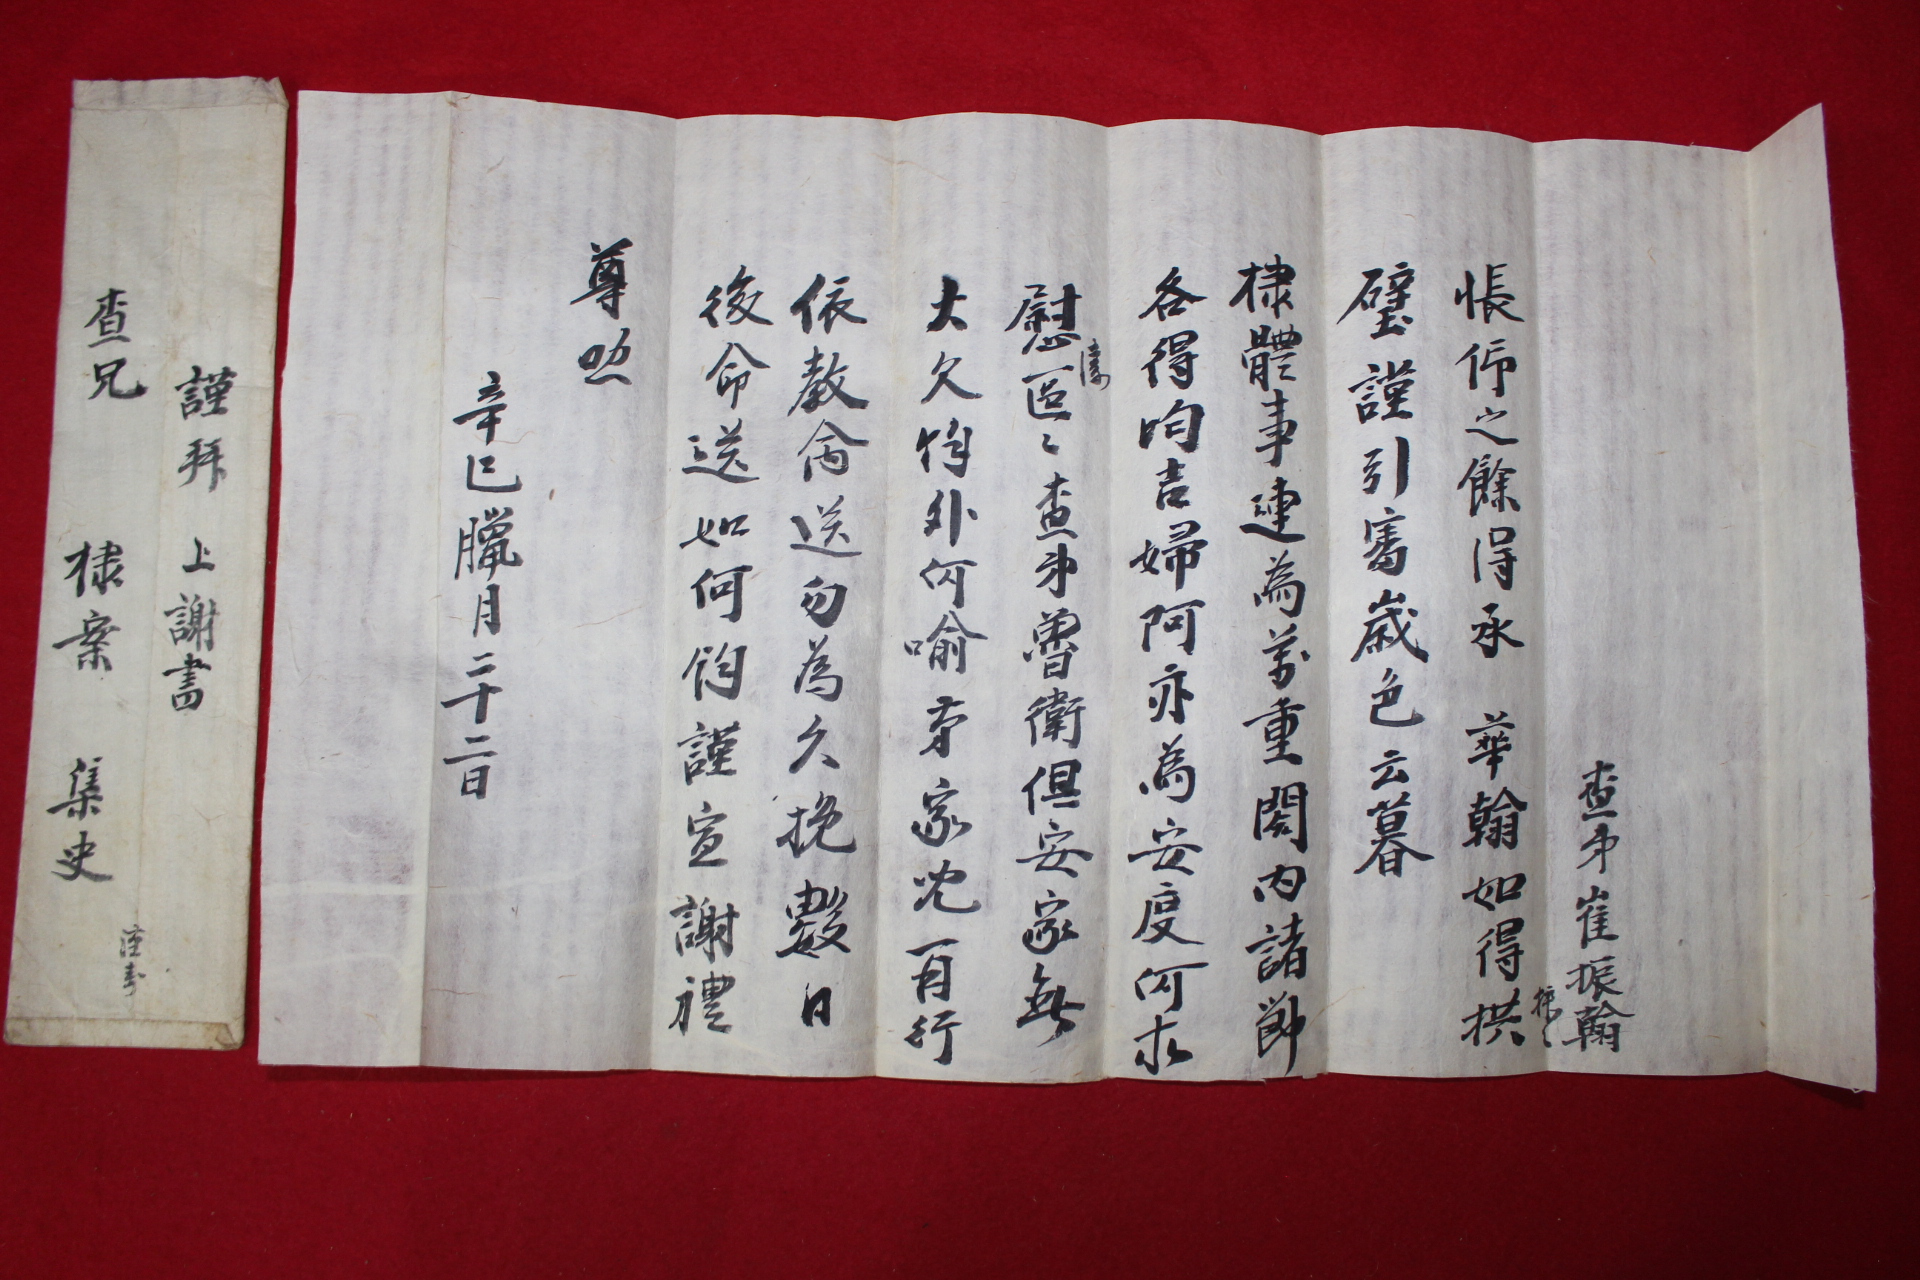 查弟崔振翰
悵㑀之餘得承 華翰如得拱
璧謹引審歲色云暮
棣體事連為萬重閤內諸節
各得均吉婦阿亦為安度何求
慰區々查弟曾衛俱安家無
大欠何外何喻
家 有行
依教 送勿為久挽數日
後命送如何 謹宣謝禮
尊照
辛巳臘月二十二日
謹拜 上謝書
查兄 棣案 集史